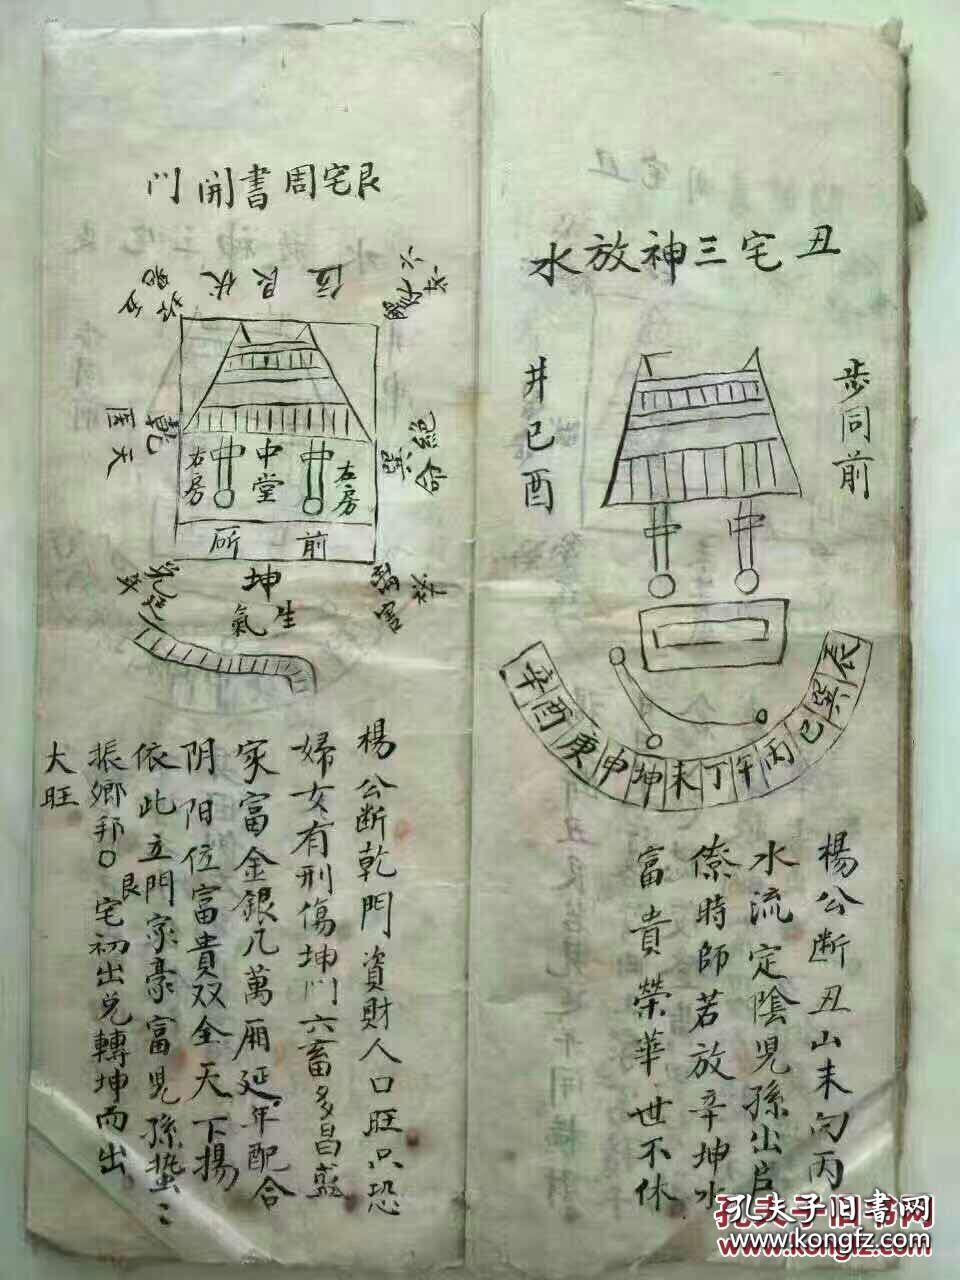 丑宅三神放水
步同前
井巳酉
中
中
辛酉庚申坤未丁午丙巳巽
楊公断丑山未向丙
水流定陰児孫出官
僚時師若放辛坤水
富貴榮華世不休
艮宅周書開門
位艮伏
絶命
巽
乾
天医
坤
生氣
中堂
左房
右房
中
中
前所
楊公断乾門資財人口旺只恐
婦女有刑傷坤门六畜多昌盛
家富金銀几萬厢延年配合
阴阳位富貴双全天下揚
依此立門家豪富児孫蛰:
振鄉邦〇艮宅初出兌轉坤而出
大旺
孔夫子旧书网
www.kongfz.com